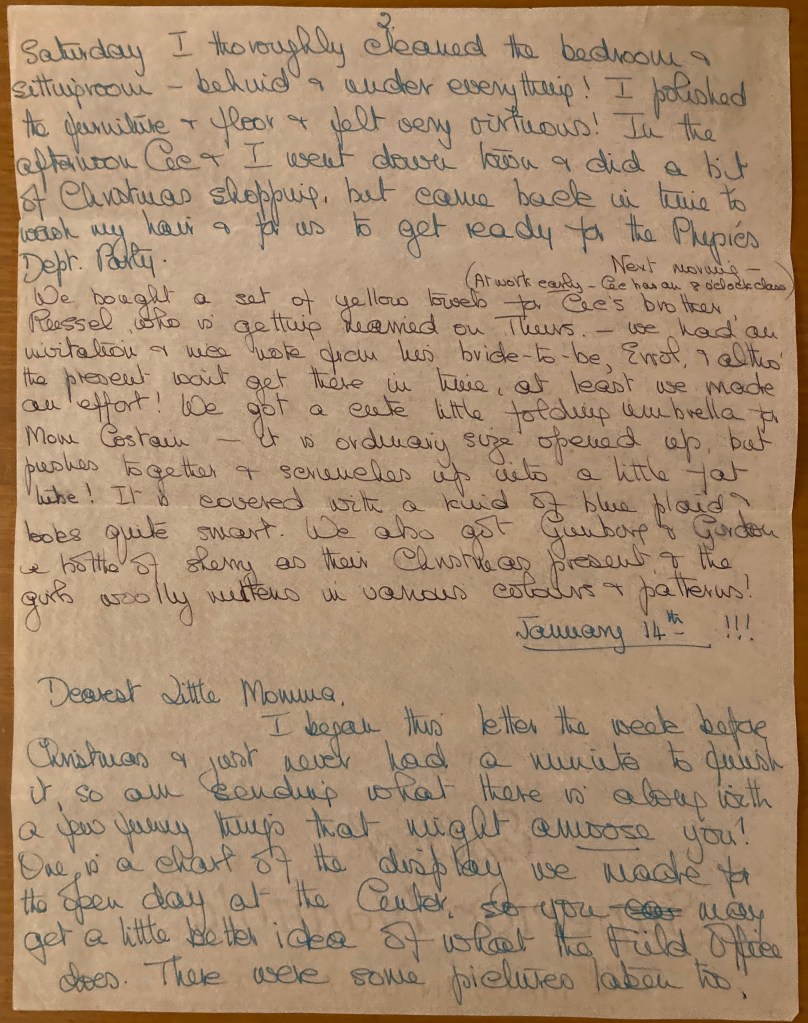 2
Saturday I thoroughly cleaned the bedroom &
sittingroom – behind & under everything! I polished
the furniture & floor & felt very virtuous! In the
afternoon Cec & I went down town & did a bit
of Christmas shopping, but came back in time to
wash my hair & for us to get ready for the Physics
Dept. Party.
Next morning –
(At work early – Cec has an 8 o'clock class)
We bought a set of yellow towels for Cec's brother,
Russel, who is getting married on Thurs. – we had an
invitation & nice note from his bride-to-be, Errol, & altho'
the present won't get there in time, at least we made
an effort! We got a cute little folding umbrella for
Mom Costain – it is ordinary size opened up, but
pushes together & scrunches up into a little fat
tube! It is covered with a kind of blue plaid &
looks quite smart. We also got Gunborg & Gordon
a bottle of sherry as their Christmas present & the
girls woolly mittens in various colours & patterns!
January 14th !!!
Dearest Little Momma,
I began this letter the week before
Christmas & just never had a minute to finish
it, so am sending what there is along with
a few funny things that might amoose you!
One is a chart of the display we made for
the open day at the Center, so you may
get a little better idea of what the Field Office
does. There were some pictures taken too,